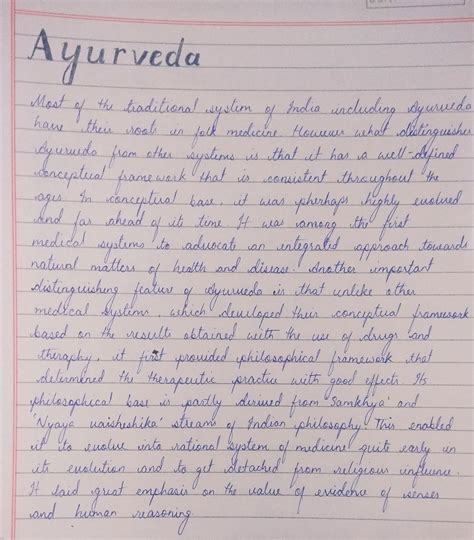 Ayurveda
Most of the traditional system of India including Ayurveda
have their roots in folk medicine. However what distinguishes
Ayurveda from other systems is that it has a well-defined
conceptual framework that is consistent throughout the
ages. In conceptual base, it was pherhaps highly evolved
and far ahead of its time. It was among the first
medical systems to advocate an integrated approach towards
natural matters of health and disease. Another important
distinguishing feature of Ayurveda is that unlike other
medical systems, which developed their conceptual framework
based on the results obtained with the use of drugs and
theraphy, it first provided philosophical framework that
determined the therapeutic practice with good effects. Its
philosophical base is partly derived from 'Samkhya' and
'Nyaya vaisheshika' streams of Indian philosophy. This enabled
it to evolve into rational system of medicine quite early in
its evolution and to get detached from religious influence.
It laid great emphasis on the value of evidence of senses
and human reasoning.